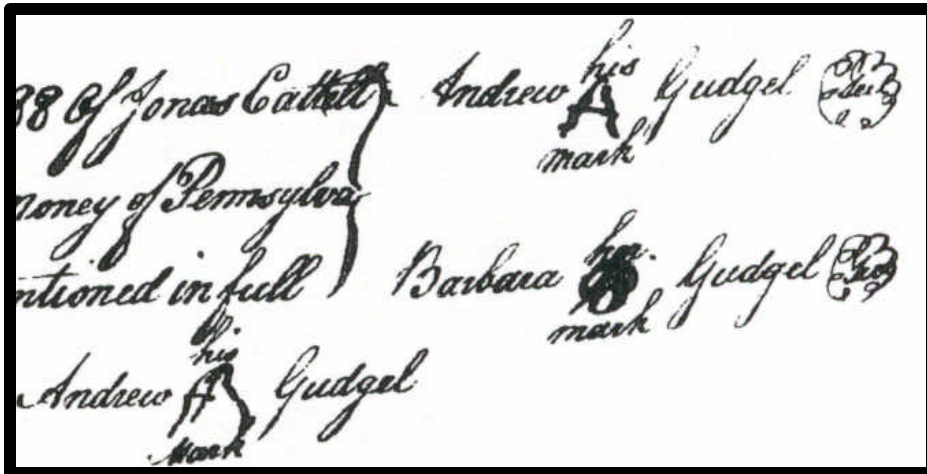 88 of Jonas Cattell
money of Pennsylva
ntioned in full
Andrew his A mark Gudgel
Andrew his A mark Gudgel Seal
Barbara her B mark Gudgel